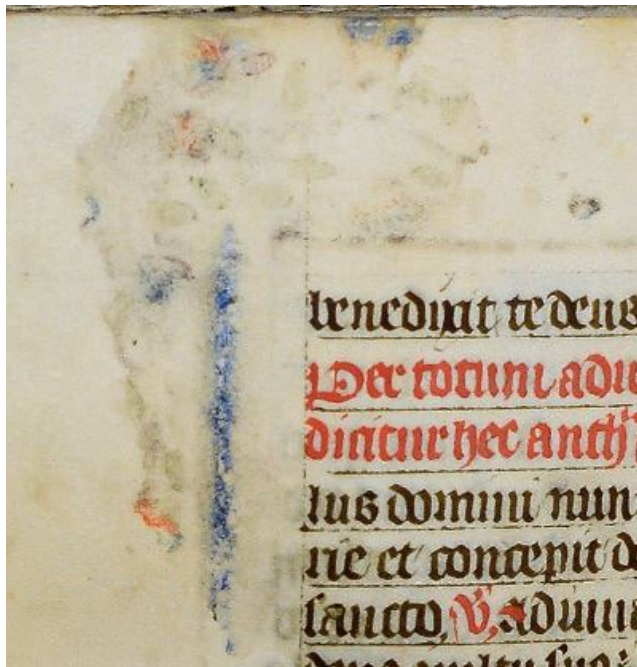 benedixit te deus
Per totum adu
dicitur hec anth
lus domini nun
rie et concepit de
sancto, V, adiuu